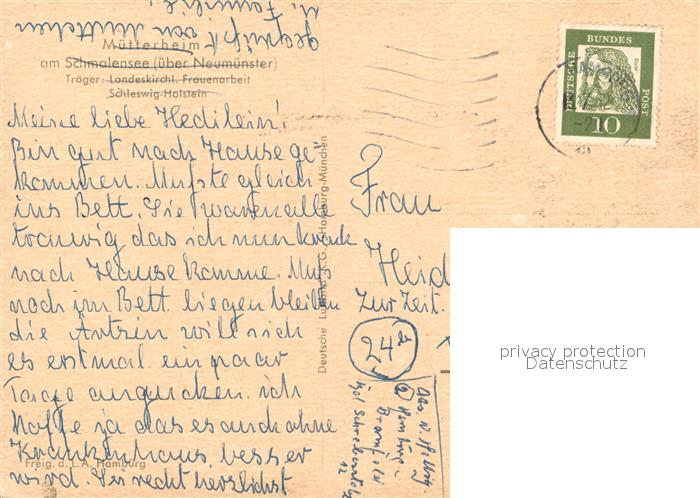 Mütterheim
am Schmalensee (über Neumünster)
Träger: Landeskirchl. Frauenarbeit
Schleswig-Holstein
Meine liebe Hedilein!
Bin gut nach Hause ge=
kommen. Mußte gleich
ins Bett. Sie waren alle
traurig das ich nun krank
nach Hause komme. Muß
noch im Bett liegen bleiben
die Ärtzin will sich
es erstmal ein paar
Tage angucken. ich
hoffe ja das es auch ohne
Krankenhaus besser
wird. Sei recht herzlichst
gegrüßt von Muttchen
u. Familie!
Freig. d. L.A. Hamburg
Deutsche Luftbild K.G., Hamburg-München
DEUTSCHE BUNDES POST
Dürer
10
Frau
Heid
zur Zeit.
24
Abs.
Hamburg
Bramfeld
12
privacy protection
Datenschutz